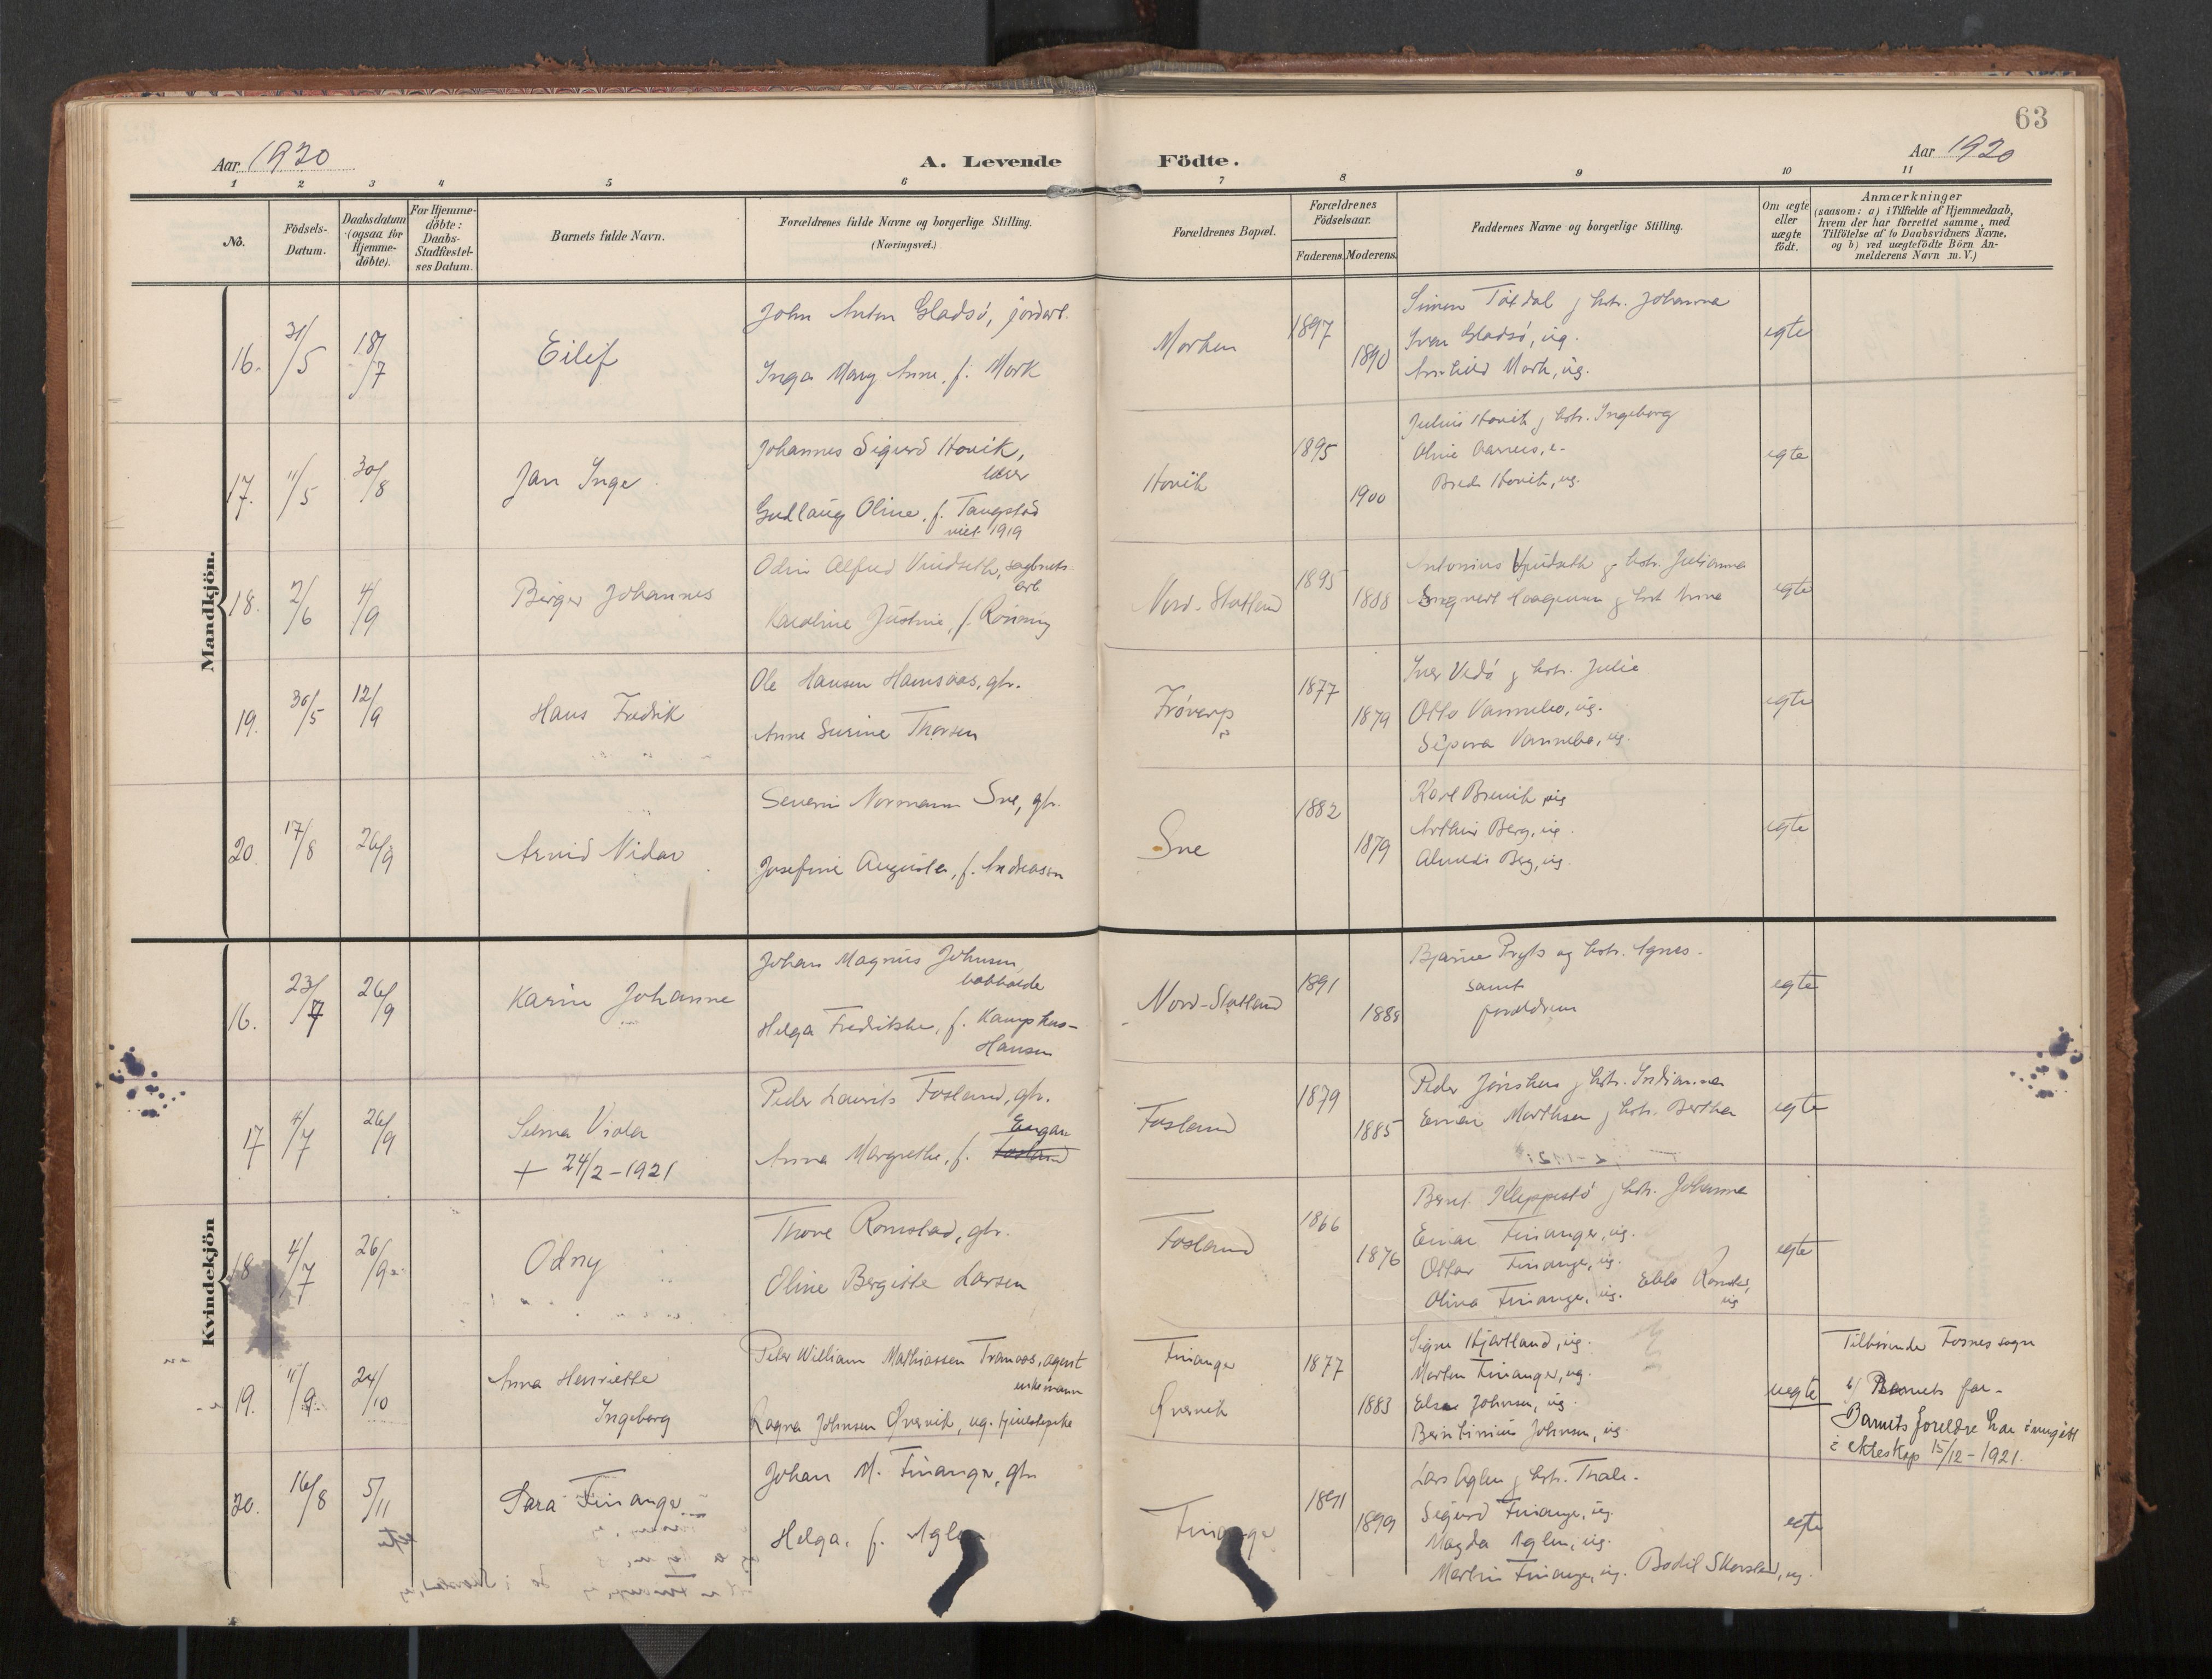 63
Aar 1920
A. Levende Födte.
Aar 1920
1 2 3 4 5 6 7 8 9 10 11
No.
Födsels-Datum.
Daabsdatum (ogsaa for Hjemme-döbte).
For Hjemme-döbte: Daabs-Stadfæstel-ses Datum.
Barnets fulde Navn.
Forældrenes fulde Navne og borgerlige Stilling.
(Næringsvei.)
Forældrenes Bopæl.
Forældrenes Födselsaar.
Faderens. Moderens.
Faddernes Navne og borgerlige Stilling.
Om ægte eller uægte födt.
Anmærkninger
(saasom: a) i Tilfælde af Hjemmedaab,
hvem der har forrettet samme, med
Tilföielse af to Daabsvidners Navne,
og b) ved uægtefödte Börn An-
melderens Navn m.V.)
Mandkjön.
16. 31/5 18/7 Eilif
John Anton Gladsö, jordarb.
Inga Mary Anne, f. Mork
Morken 1897 1890
Simen Tötdal g hstr. Johanna
Iver Gladsö, ug.
Mork, ug.
egte
17. 11/5 30/8 Jan Inge
Johannes Sigurd Hovik,
lærer
Gudlaug Oline, f. Tangstad
viet 1919
Hovik 1895 1900
Julius Hovik g hstr. Ingeborg
Oline
Hovik, ug.
egte
18. 2/6 4/9 Birger Johannes
Odin Alfred Vindseth, sagbruks-
arb
Karoline Justine, f. Rönning
Nord-Statland 1895 1888
Antonius Vindseth g hstr. Julianna
Haagensen g hstr Anna
egte
19. 30/5 12/9 Hans Fredrik
Ole Hansen Hamsaas, gbr.
Anne Surine Thorsen
1877 1879
Iver Vedö g hstr. Julie
Otto Vannebo, ug.
Vannebo, ug.
egte
20. 17/8 26/9 Arvid Nidar
Severin Normann Sve, gbr.
Josefine Augusta, f. Andreasen
Sve 1882 1879
Karl Brevik, ug
Arthur Berg, ug.
Berg, ug.
egte
Kvindekjön
16. 23/7 26/9 Karin Johanne
Johan Magnus Johnsen,
Helga Fredrikke, f. Kamphus-
Hansen
Nord-Statland 1891 1888
Bjarne Pryts og hstr. Agnes.
samt
foreldrene
egte
17 4/7 26/9 Selma Viola
+ 24/2-1921
Peder Laurits Fosland, gbr.
Engan
Anna Margrethe, f. Fosland
Fosland 1879 1885
Peder g hstr.
Einar Marthsen g hstr. Berthe
egte
18 4/7 26/9 Odny
Thove Romstad, gbr.
Oline Bergitte Larsen
Fosland 1866 1876
Bernt. Kleppestö g hstr. Johanna
Einar Finanger, ug.
Ottar Finanger, ug.
Olina Finanger, ug. Ebba Romstad,
ug
egte
19. 11/9 24/10 Anna Henriette
Ingeborg
Peter William Mathiassen Tranaas, agent
enkemann
Ragna Johnsen Qvernvik, ug. tjenestepike
Finanger
1877 1883
Signe Hjortland, ug.
Morten Finanger, ug.
Else Johnsen, ug.
Johnsen, ug.
uegte
Tilhörende Fosnes sogn
b/ Barnets far-
Barnets foreldre har inngått
i ekteskap 15/12-1921.
20. 16/8 5/11 Sara Finanger
Johan M. Finanger, gbr
Helga, f. Aglen
Finanger 1891 1899
Lars Aglen g hstr. Thale.
Sigurd Finanger, ug.
Magda Aglen, ug.
Martin Finanger, ug. Bodil Skorstad, ug.
egte